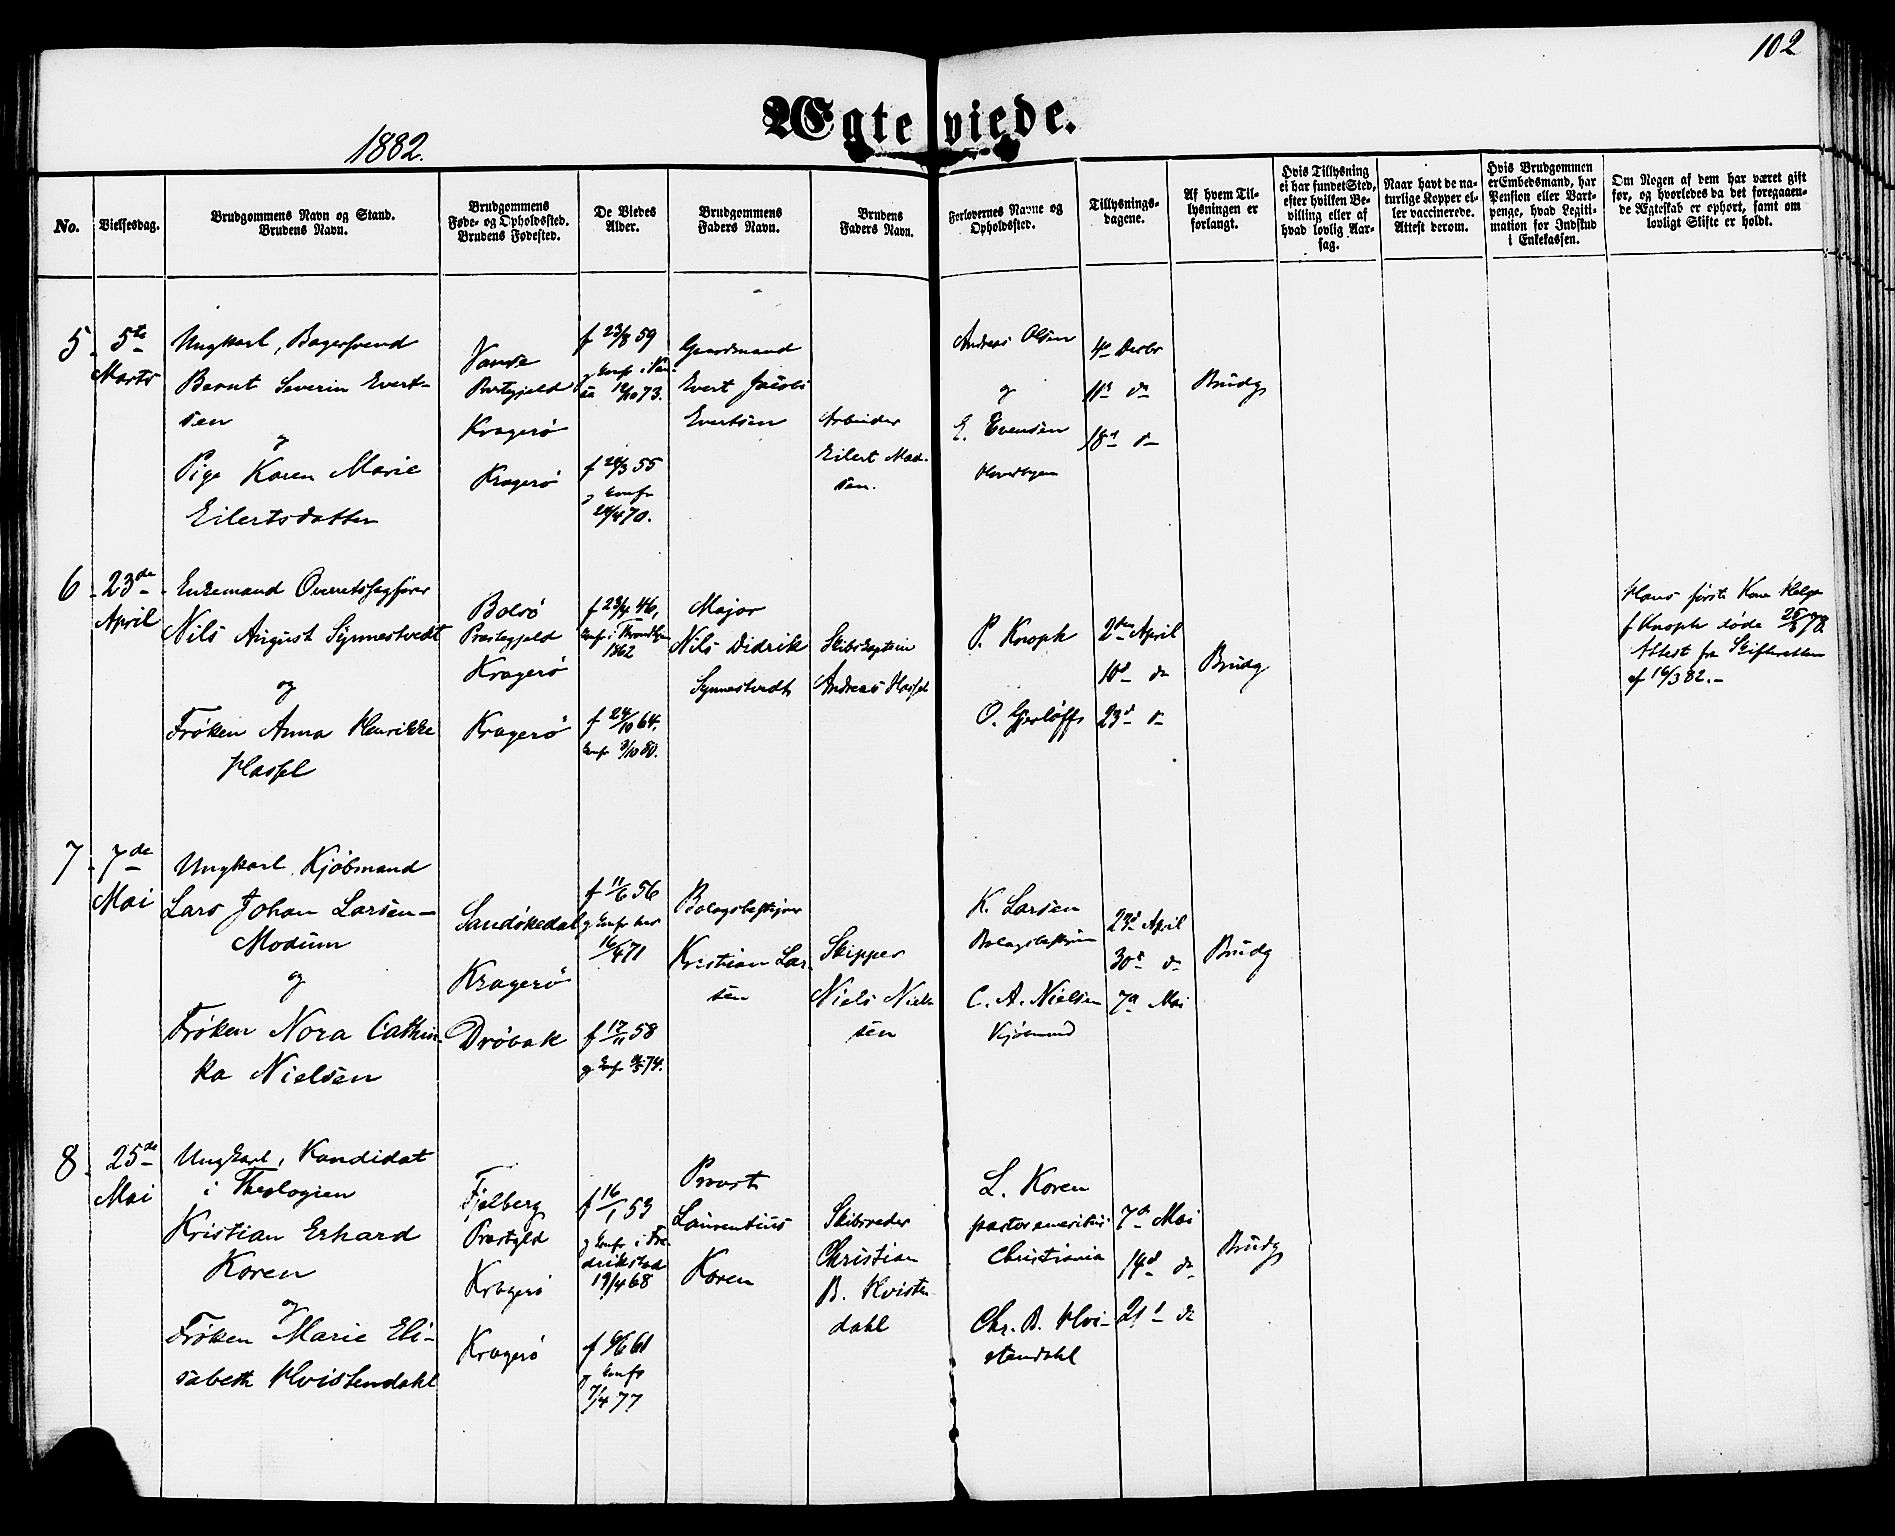 102
Ægteviede.
1882.
No.
Vielsesdag.
Brudgommens Navn og Stand.
Brudens Navn.
Brudgommens
Føde- og Opholdssted.
Brudens Fødested.
De Viedes
Alder.
Brudgommens
Faders Navn.
Brudens
Faders Navn.
Forlovernes Navne og
Opholdssted.
Tillysnings-
dagene.
Af hvem Til-
lysningen er
forlangt.
Hvis Tillysning
ei har fundet Sted,
efter hvilken Be-
villing eller af
hvad lovlig Aar-
sag.
Naar havt de na-
turlige Kopper el-
ler vaccinerede.
Attest derom.
Hvis Brudgommen
er Embedsmand, har
Pension eller Vart-
penge, hvad Legiti-
mation for Indskud
i Enkekassen.
Om Nogen af dem har været gift
før, og hvorledes da det foregaaen-
de Ægteskab er ophørt, samt om
lovligt Skifte er holdt.
5.
5te
Marts
Ungkarl, Bagersvend
Bernt Severin Evert-
sen
og
Pige Karen Marie
Eilertsdatter
Vanse
Præstegjeld
Kragerø
Kragerø
f 23/8 59
g Conf. i Van-
73.
f 55
g Conf
70.
Gaardmand
Evert Jacob
Evertsen
Arbeider
Eilert Mad-
sen.
Andreas Olsen
og
E. Evensen
4de
11te do
18de do
Brudg
6.
23de
April
Enkemand Overretssagfører
Nils August Synnestvedt
og
Frøken Anna Henrikke
Hassel
Bolsø
Præstegjeld
Kragerø
Kragerø
f 23/4 46,
Conf i Trondhjem
1862
f 24/10 64.
Conf 3/10 80.
Major
Nils Didrik
Synnestvedt
Skibskaptein
Andreas Hassel
P. Knoph
O. Gjerløff
2den April
10de do
23de do
Brudg
Hans første Kone Helga
f Knoph døde 78.
Attest fra Skifteretten
af 16/3 82.-
7.
7de
Mai
Ungkarl Kjøbmand
Lars Johan Larsen-
Modum
og
Frøken Nora Cathin-
ka Nielsen
Sandøkedal
Kragerø
Drøbak
f 11/6 56
g Conf her
16/4 71
f 17/11 58
g Conf 74.
Bolagsbestyrer
Kristian Lar-
sen
Skipper
Niels Niel-
sen
K. Larsen
Bolagsbestyrer
C. A. Nielsen
Kjøbmand
23de April
30te do
7de Mai
Brudg
8.
25de
Mai
Ungkarl, Kandidat
i Theologien
Kristian Erhard
Koren
og
Frøken Marie Eli-
sabeth Hvistendahl
Fjelberg
Præstgjeld
Kragerø
Kragerø
f 16/1 53
g Conf i Fre-
drikstad
19/4 68
f 61
g Conf
7/4 77
Provst
Laurentius
Koren
Skibsreder
Christian
B. Hvisten-
dahl
L. Koren
pastor emeritus
Christiania
Chr. B. Hvi-
stendahl
7de Mai
14de do
21de do
Brudg